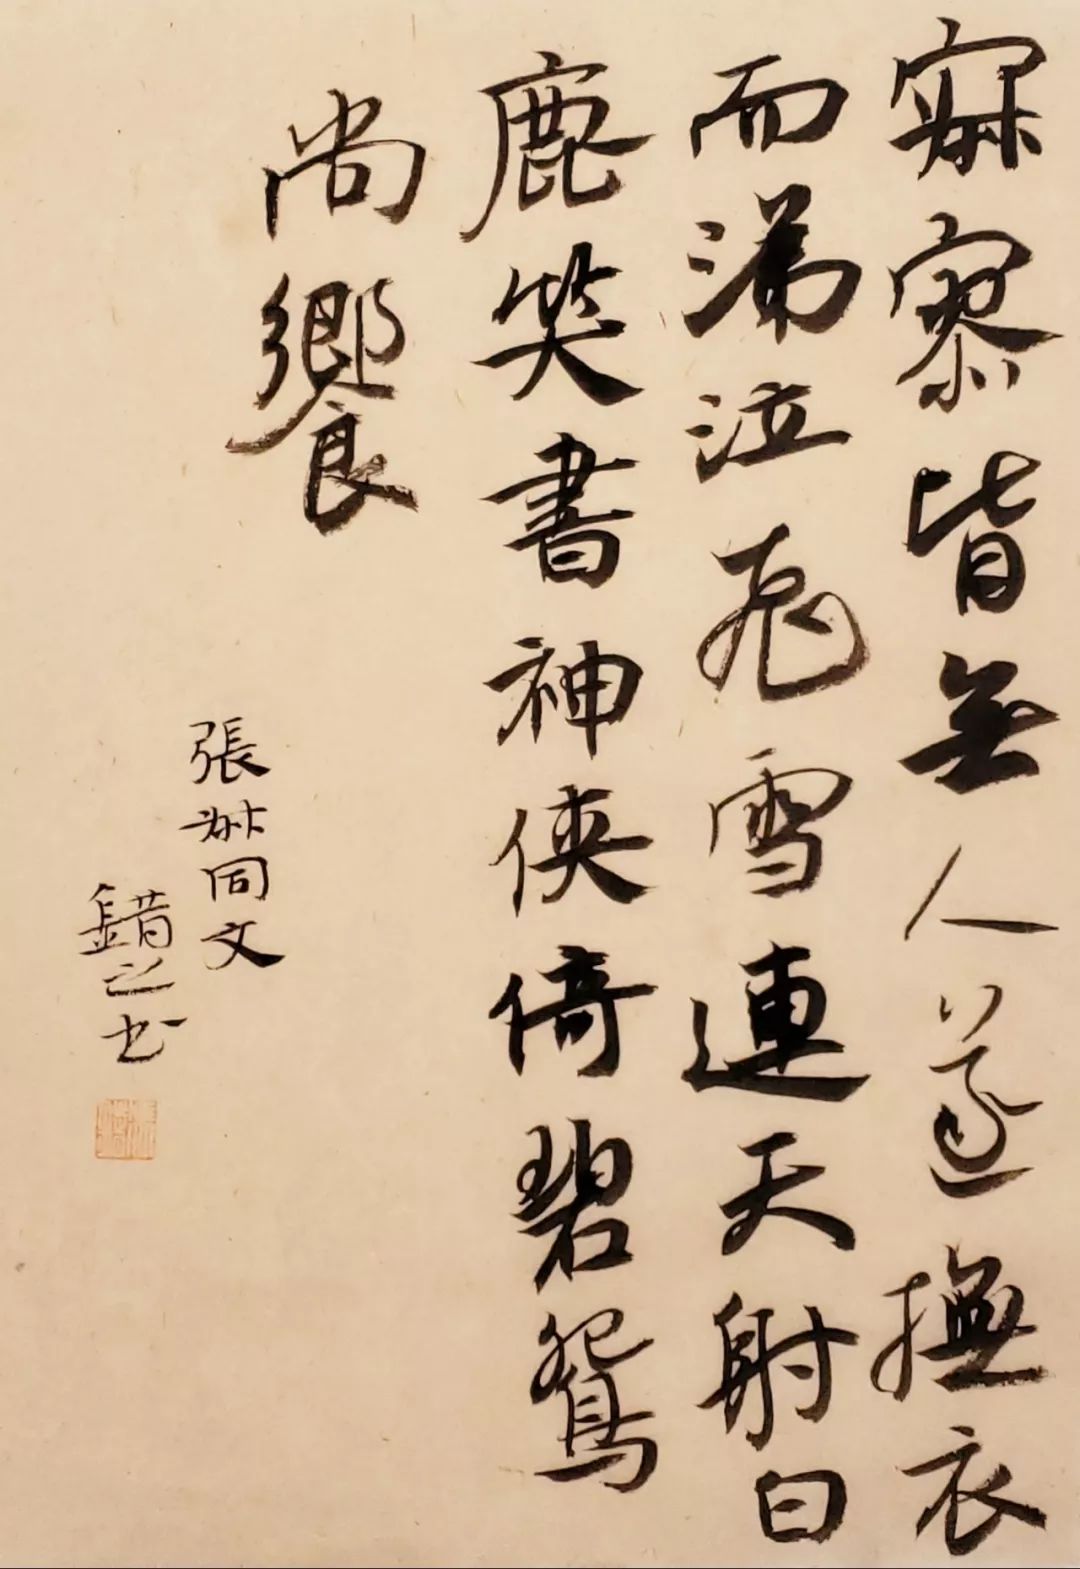 寂寥皆無人遂撫衣
而涕泣飛雪連天射白
鹿笑書神俠倚碧鴛
尚饗
張尗同文
錯之书